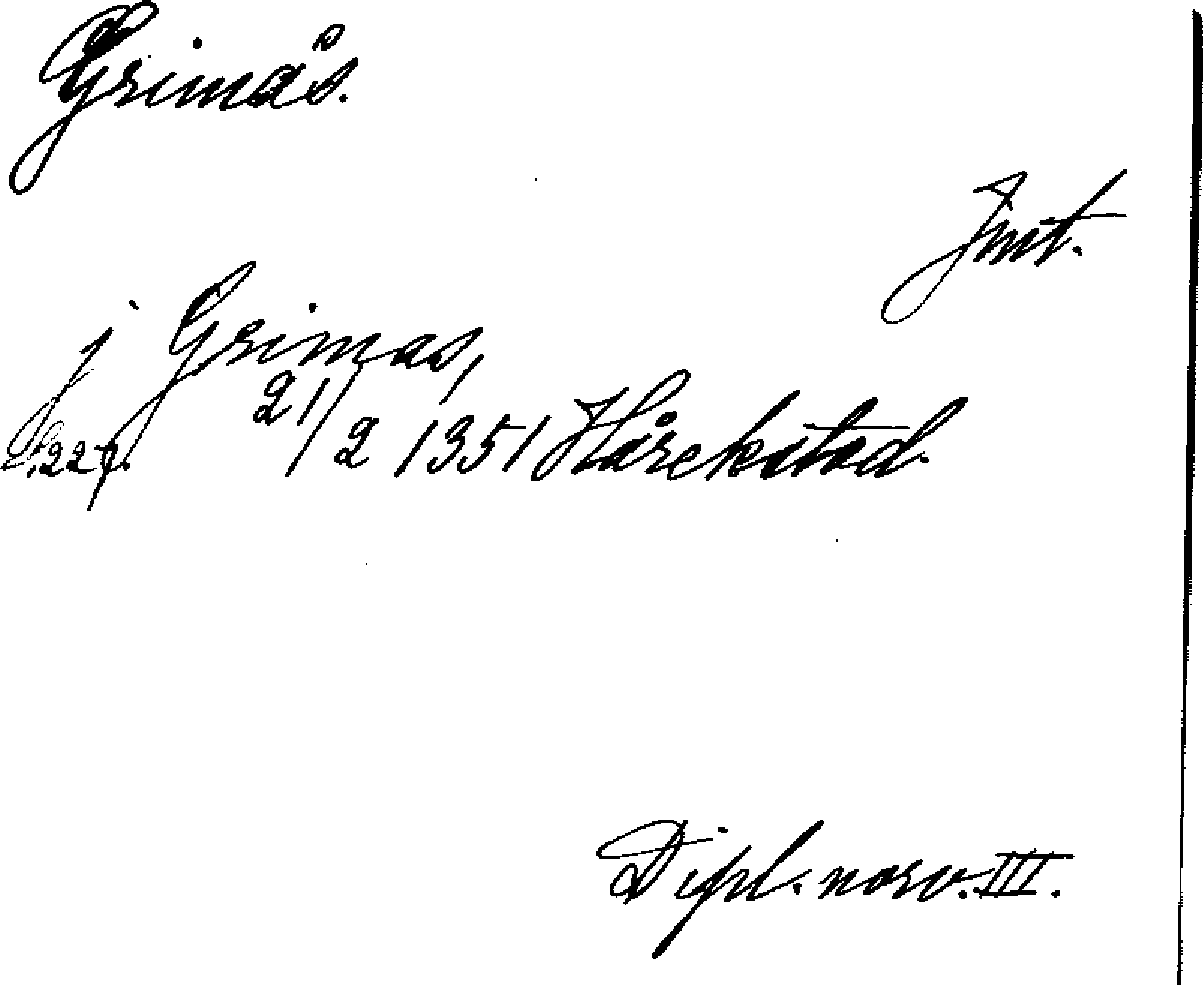 Grimås.
Jmt.
j Grimas,
s. 227. 21/2 1351 Hårekstad.
Dipl. norv. III.